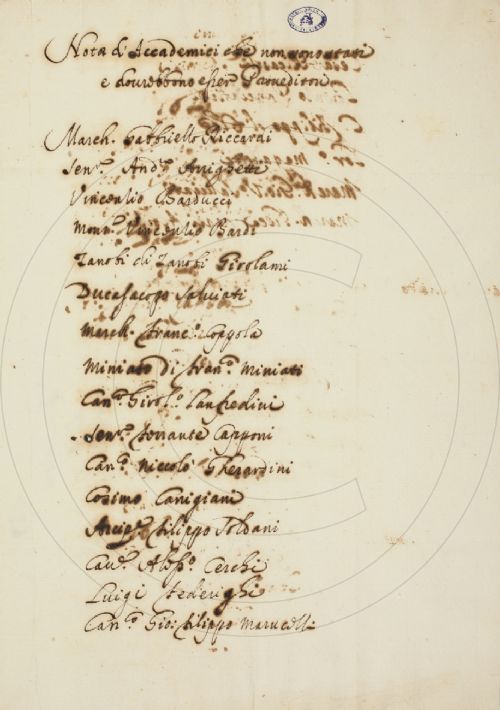 Nota d'Accademici che non sono stati
e dovrebbono esser Proveditori
March. Gabbriello Riccardi
Senr. Andr. Arrighetti
Vincenzio Barducci
Monsr. Vincenzio Bardi
Zanobi di Zanobi Girolami
Duca Jacopo Salviati
March. Franco. Coppola
Miniato Di Frano. Miniati
Cano. Girolo. Lanfredini
Senr. Ferrante Capponi
Cano. Niccolò Gherardini
Cosimo Canigiani
Arcipr. Filippo Soldani
Cavr. Alesso. Cerchi
Luigi Federighi
Cano. Gio: Filippo Marucelli